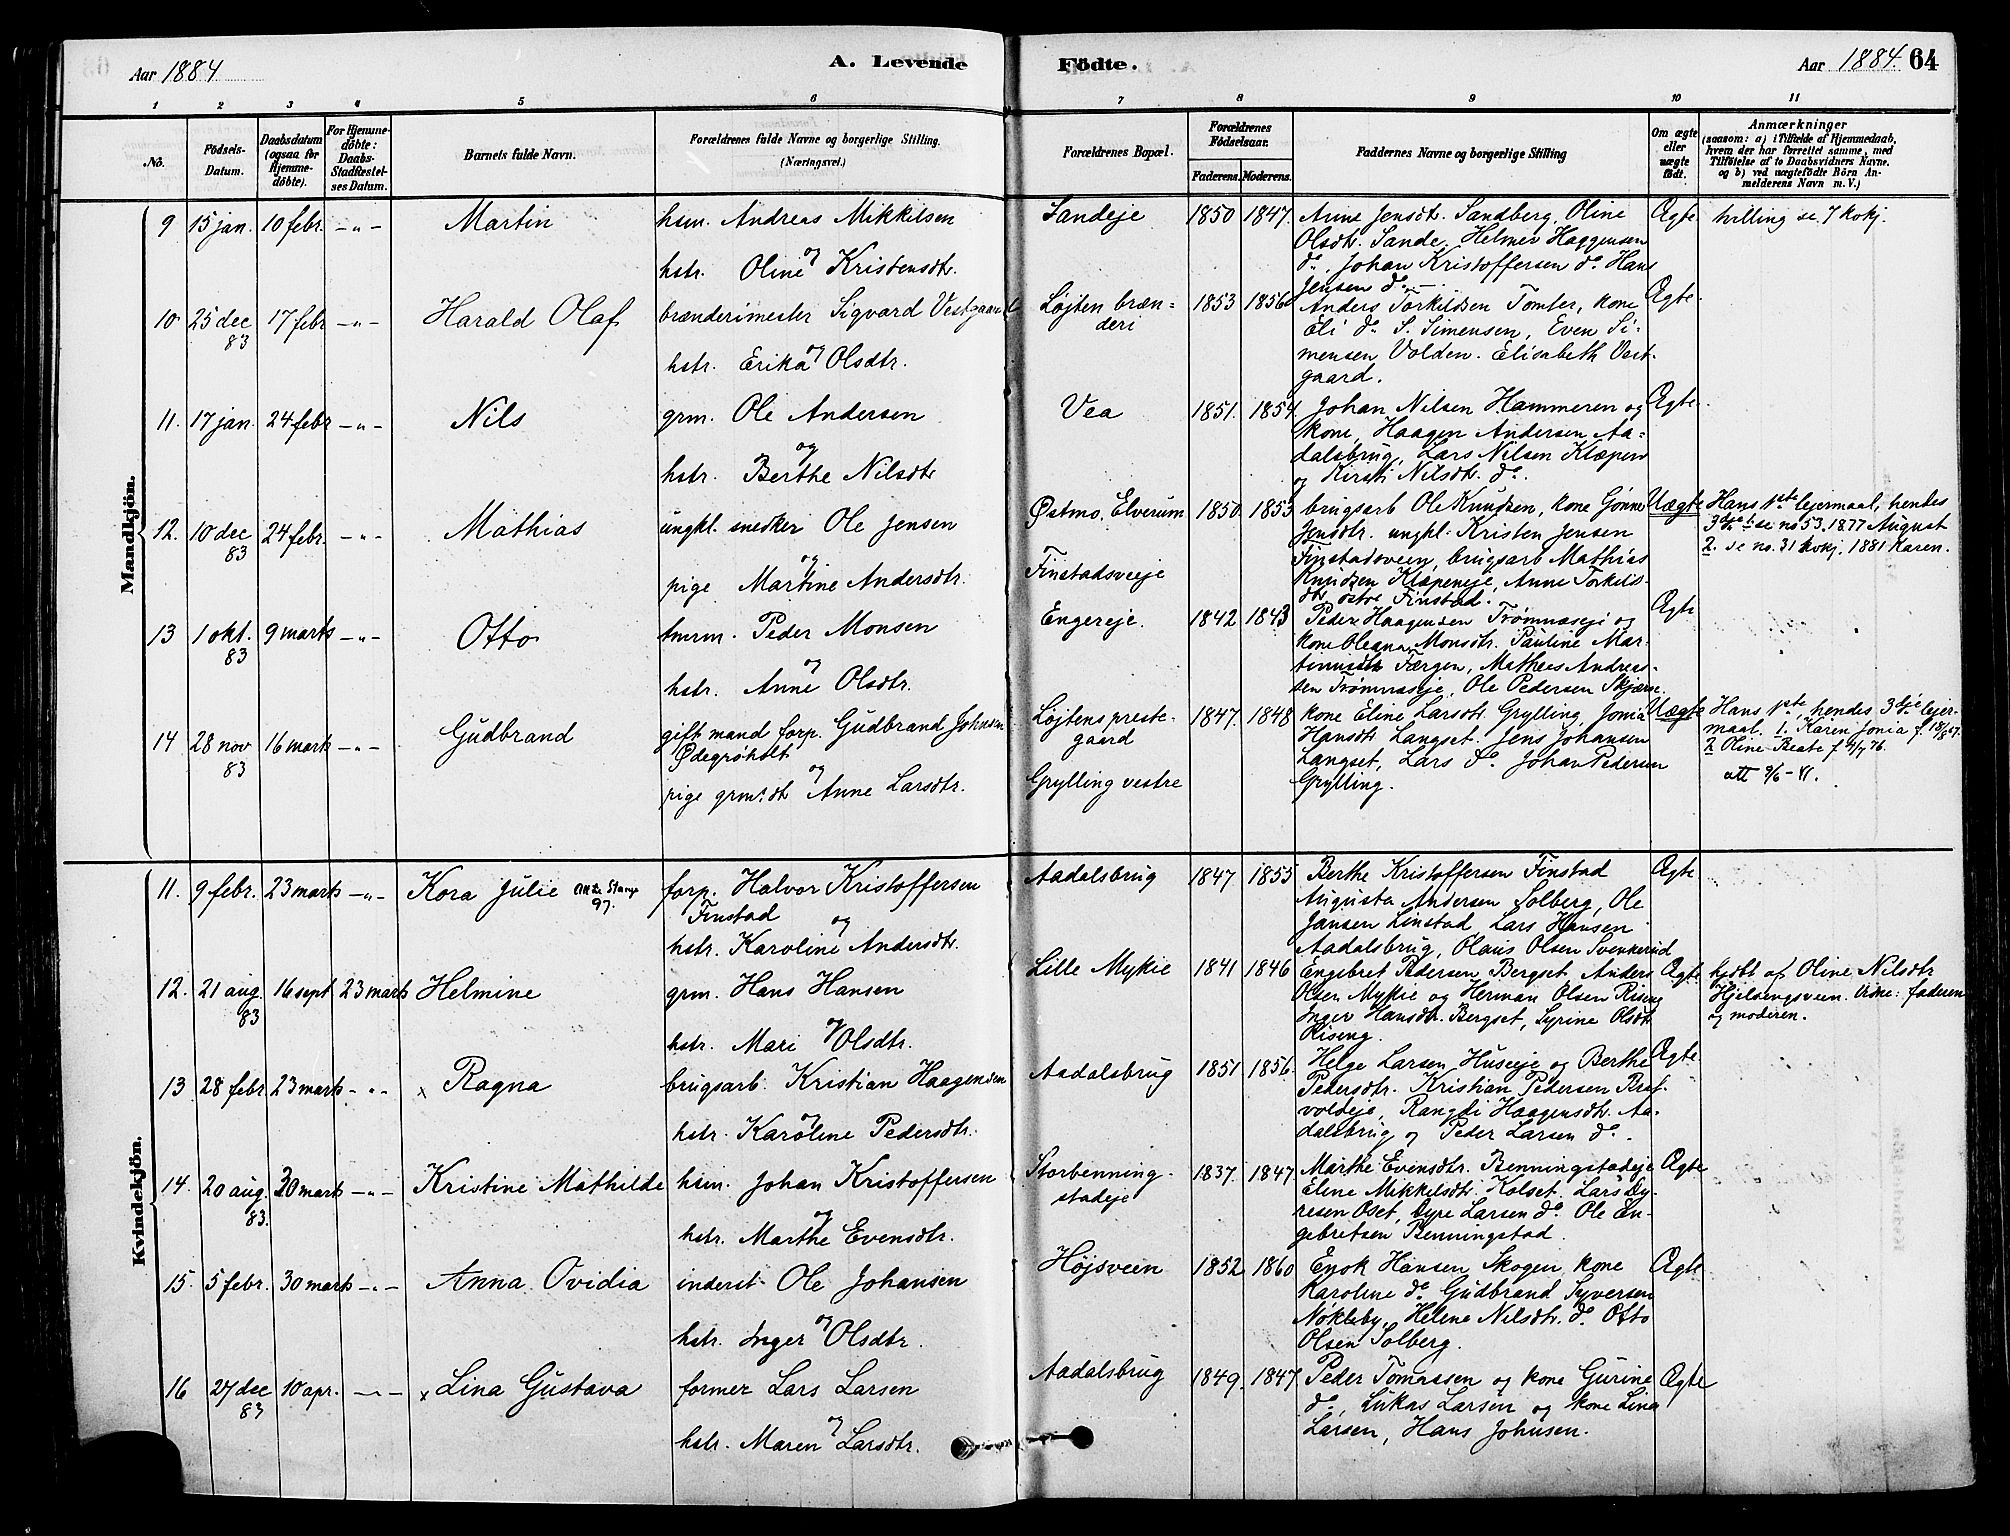 Aar 1884
A. Levende
Födte.
Aar 1884. 64
1 2 3 4 5 6 7 8 9 10 11
No.
Födsels-
Datum.
Daabsdatum
(ogsaa for
Hjemme-
döbte).
For Hjemme-
döbte:
Daabs-
Stadfæstel-
ses Datum.
Barnets fulde Navn.
Forældrenes fulde Navne og borgerlige Stilling.
(Næringsvei.)
Forældrenes Bopæl.
Forældrenes
Födselsaar.
Faderens. Moderens.
Faddernes Navne og borgerlige Stilling
Om ægte
eller
uægte
födt.
Anmærkninger
(saasom: a) i Tilfælde af Hjemmedaab,
hvem der har forrettet samme, med
Tilföielse af to Daabsvidners Navne.
og b) ved uægtefödte Börn An-
melderens Navn m. V.)
Mandkjön.
9 15 jan. 10 febr. -"- Martin
hsm. Andreas Mikkelsen
og
hstr. Oline Kristensdtr.
Sandeje 1850 1847.
Anne Jensdtr. Sandberg, Oline
Olsdtr. Sande, Helmer Haagensen
do. Johan Kristoffersen do. Hans
Jensen do.
Ægte
tvilling se 7 kvkj.
10 25 dec 17 febr -"- Harald Olaf
83
brænderimester Sigvard Vestgaard
og
hstr. Erika Olsdtr.
Løjten bræn-
deri
1853 1856
Anders Torkildsen Tomter, kone
Eli do. S. Simensen, Even Si-
mensen Volden. Elisabeth Vest-
gaard.
Ægte
11. 17 jan. 24 febr -"- Nils
grm. Ole Andersen
og
hstr. Berthe Nilsdtr
Vea 1851. 1854
Johan Nilsen Hammeren og
kone, Haagen Andersen Aa-
dalsbrug, Lars Nilsen Klæpen
og Kirsti Nilsdtr. do.
Ægte
12. 10 dec 24 febr. -"- Mathias
83
ungkl. snedker Ole Jensen
og
pige Martine Andersdtr.
Østmo, Elverum
Finstadsveeje
1850 1853
brugsarb Ole Knudsen, kone Gønne
Jensdtr. ungkl. Kristen Jensen
Finstadsveen, brugsarb Mathias
Knudsen Klæpeneje, Anne Torkils-
dtr østre Finstad.
Uægte
Hans 1ste lejermaal, hendes
3dje: 1. se no 53. 1877 August
2. se no. 31 kvkj. 1881 Karen.
13 1 okt. 9 marts -"- Otto
83
tmrm. Peder Monsen
og
hstr. Anne Olsdtr.
Engereje. 1842 1843
Peder Haagensen Trømnæseje og
kone Oleana Monsdtr. Pauline Mar-
tinusdtr Færgen, Matheas Andreas-
sen Trømnæseje, Ole Pedersen Skjærn.
Ægte
14 28 nov 16 marts -"- Gudbrand
83
gift mand forp. Gudbrand Johnsen
Ødegrøholt
og
pige grm.dtr Anne Larsdtr.
Løjtens preste-
gaard
Grylling vestre
1847. 1848
kone Eline Larsdtr. Grylling, Jonia
Hansdtr Langset. Jens Johansen
Langset, Lars do. Johan Pedersen
Grylling.
Uægte
Hans 1ste, hendes 3dje lejer-
maal. 1. Karen Jonia f. 18/8 67.
2 Oline Beate f 4/7 76.
att 9/6-41.
Kvindekjön.
11. 9 febr. 23 marts -"- Kora Julie
97.
forp. Halvor Kristoffersen
Finstad
og
hstr. Karoline Andersdtr.
Aadalsbrug 1847 1855
Berthe Kristoffersen Finstad
Augusta Andersen Solberg, Ole
Jansen Linstad, Lars Hansen
Aadalsbrug, Olaus Olsen Svenkerud
Ægte
12. 21 aug. 16 sept 23 marts Helmine
83
grm. Hans Hansen
og
hstr. Mari Olsdtr.
Lille Mykie 1841 1846
Engebret Pedersen Bergset, Anders
Olsen Mykie og Herman Olsen Riseng
Inger Hansdtr. Bergset, Syrine Olsdtr
Riseng.
Ægte.
hjdbt af Oline Nilsdtr
Hjelsengsveen. Vidne: faderen
og moderen.
13 28 febr 23 marts -"- x Ragna
brugsarb. Kristian Haagensen
og
hstr. Karoline Pedersdtr.
Aadalsbrug 1851 1856.
Helge Larsen Huseeje og Berthe
Pedersdtr. Kristian Pedersen Braf-
voldeje, Rangdi Haagensdtr. Aa-
dalsbrug og Peder Larsen do.
Ægte
14. 20 aug. 30 marts -"- Kristine Mathilde
83.
hsm. Johan Kristoffersen
og
hstr. Marthe Evensdtr.
Storbenning-
stadeje
1837. 1847
Marthe Evensdtr. Benningstadeje
Eline Mikkelsdtr. Kolset. Lars Dy-
resen Oset, Dyre Larsen do. Ole En-
gebretsen Benningstad.
Ægte
15. 5 febr. 30 marts -"- Anna Ovidia
inderst Ole Johansen
og
hstr. Inger Olsdtr.
Højsveen 1852 1860
Enok Hansen Skogen, kone
Karoline do. Gudbrand Syversen
Nøkleby, Helene Nilsdtr. do. Otto
Olsen Solberg.
Ægte
16 27 dec 10 apr. -"- x Lina Gustava
83
former Lars Larsen
og
hstr. Maren Larsdtr.
Aadalsbrug 1849. 1847
Peder Tomassen og kone Gurine
do, Lukas Larsen og kone Lina
Larsen, Hans Johnsen.
Ægte